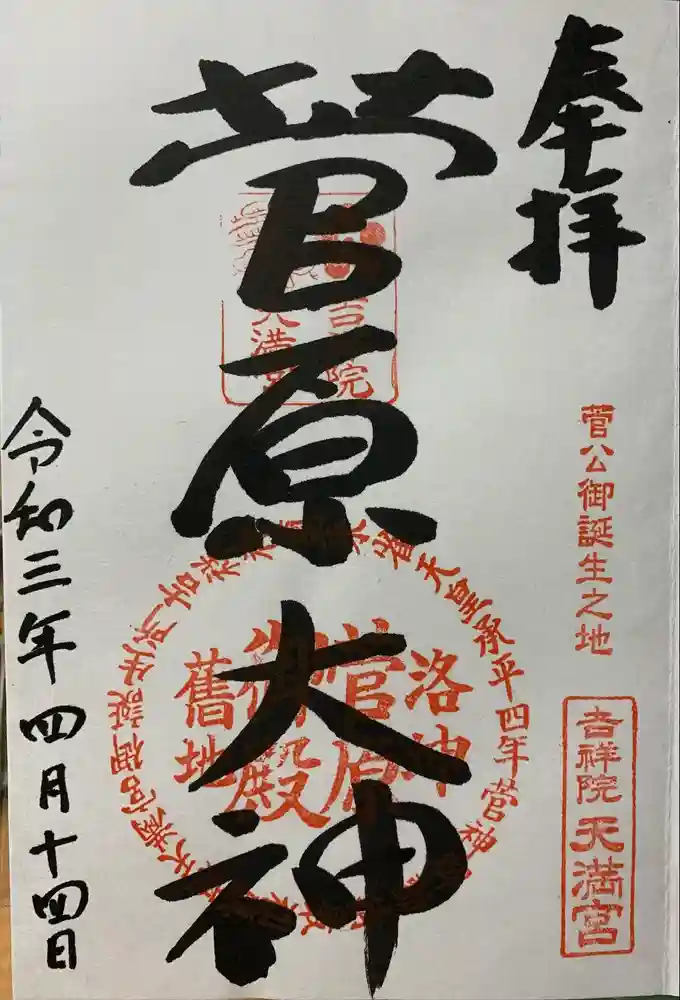 奉拝
菅公御誕生之地
吉祥院天満宮
菅原大神
洛
菅原
御殿
舊地
天皇承平四年菅神
令和三年四月十四日